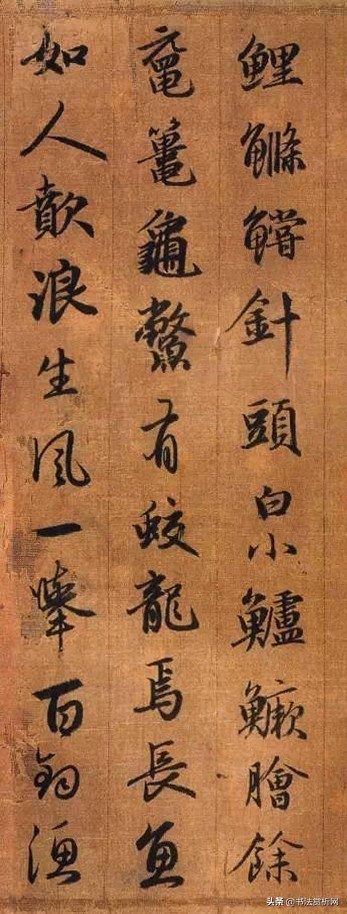 鯉鰷鱨針頭白小鱸鱖膾餘
黿鼉龜鱉有蛟龍焉長魚
如人歕浪生風一百鈞漁
头条 @书法赏析网